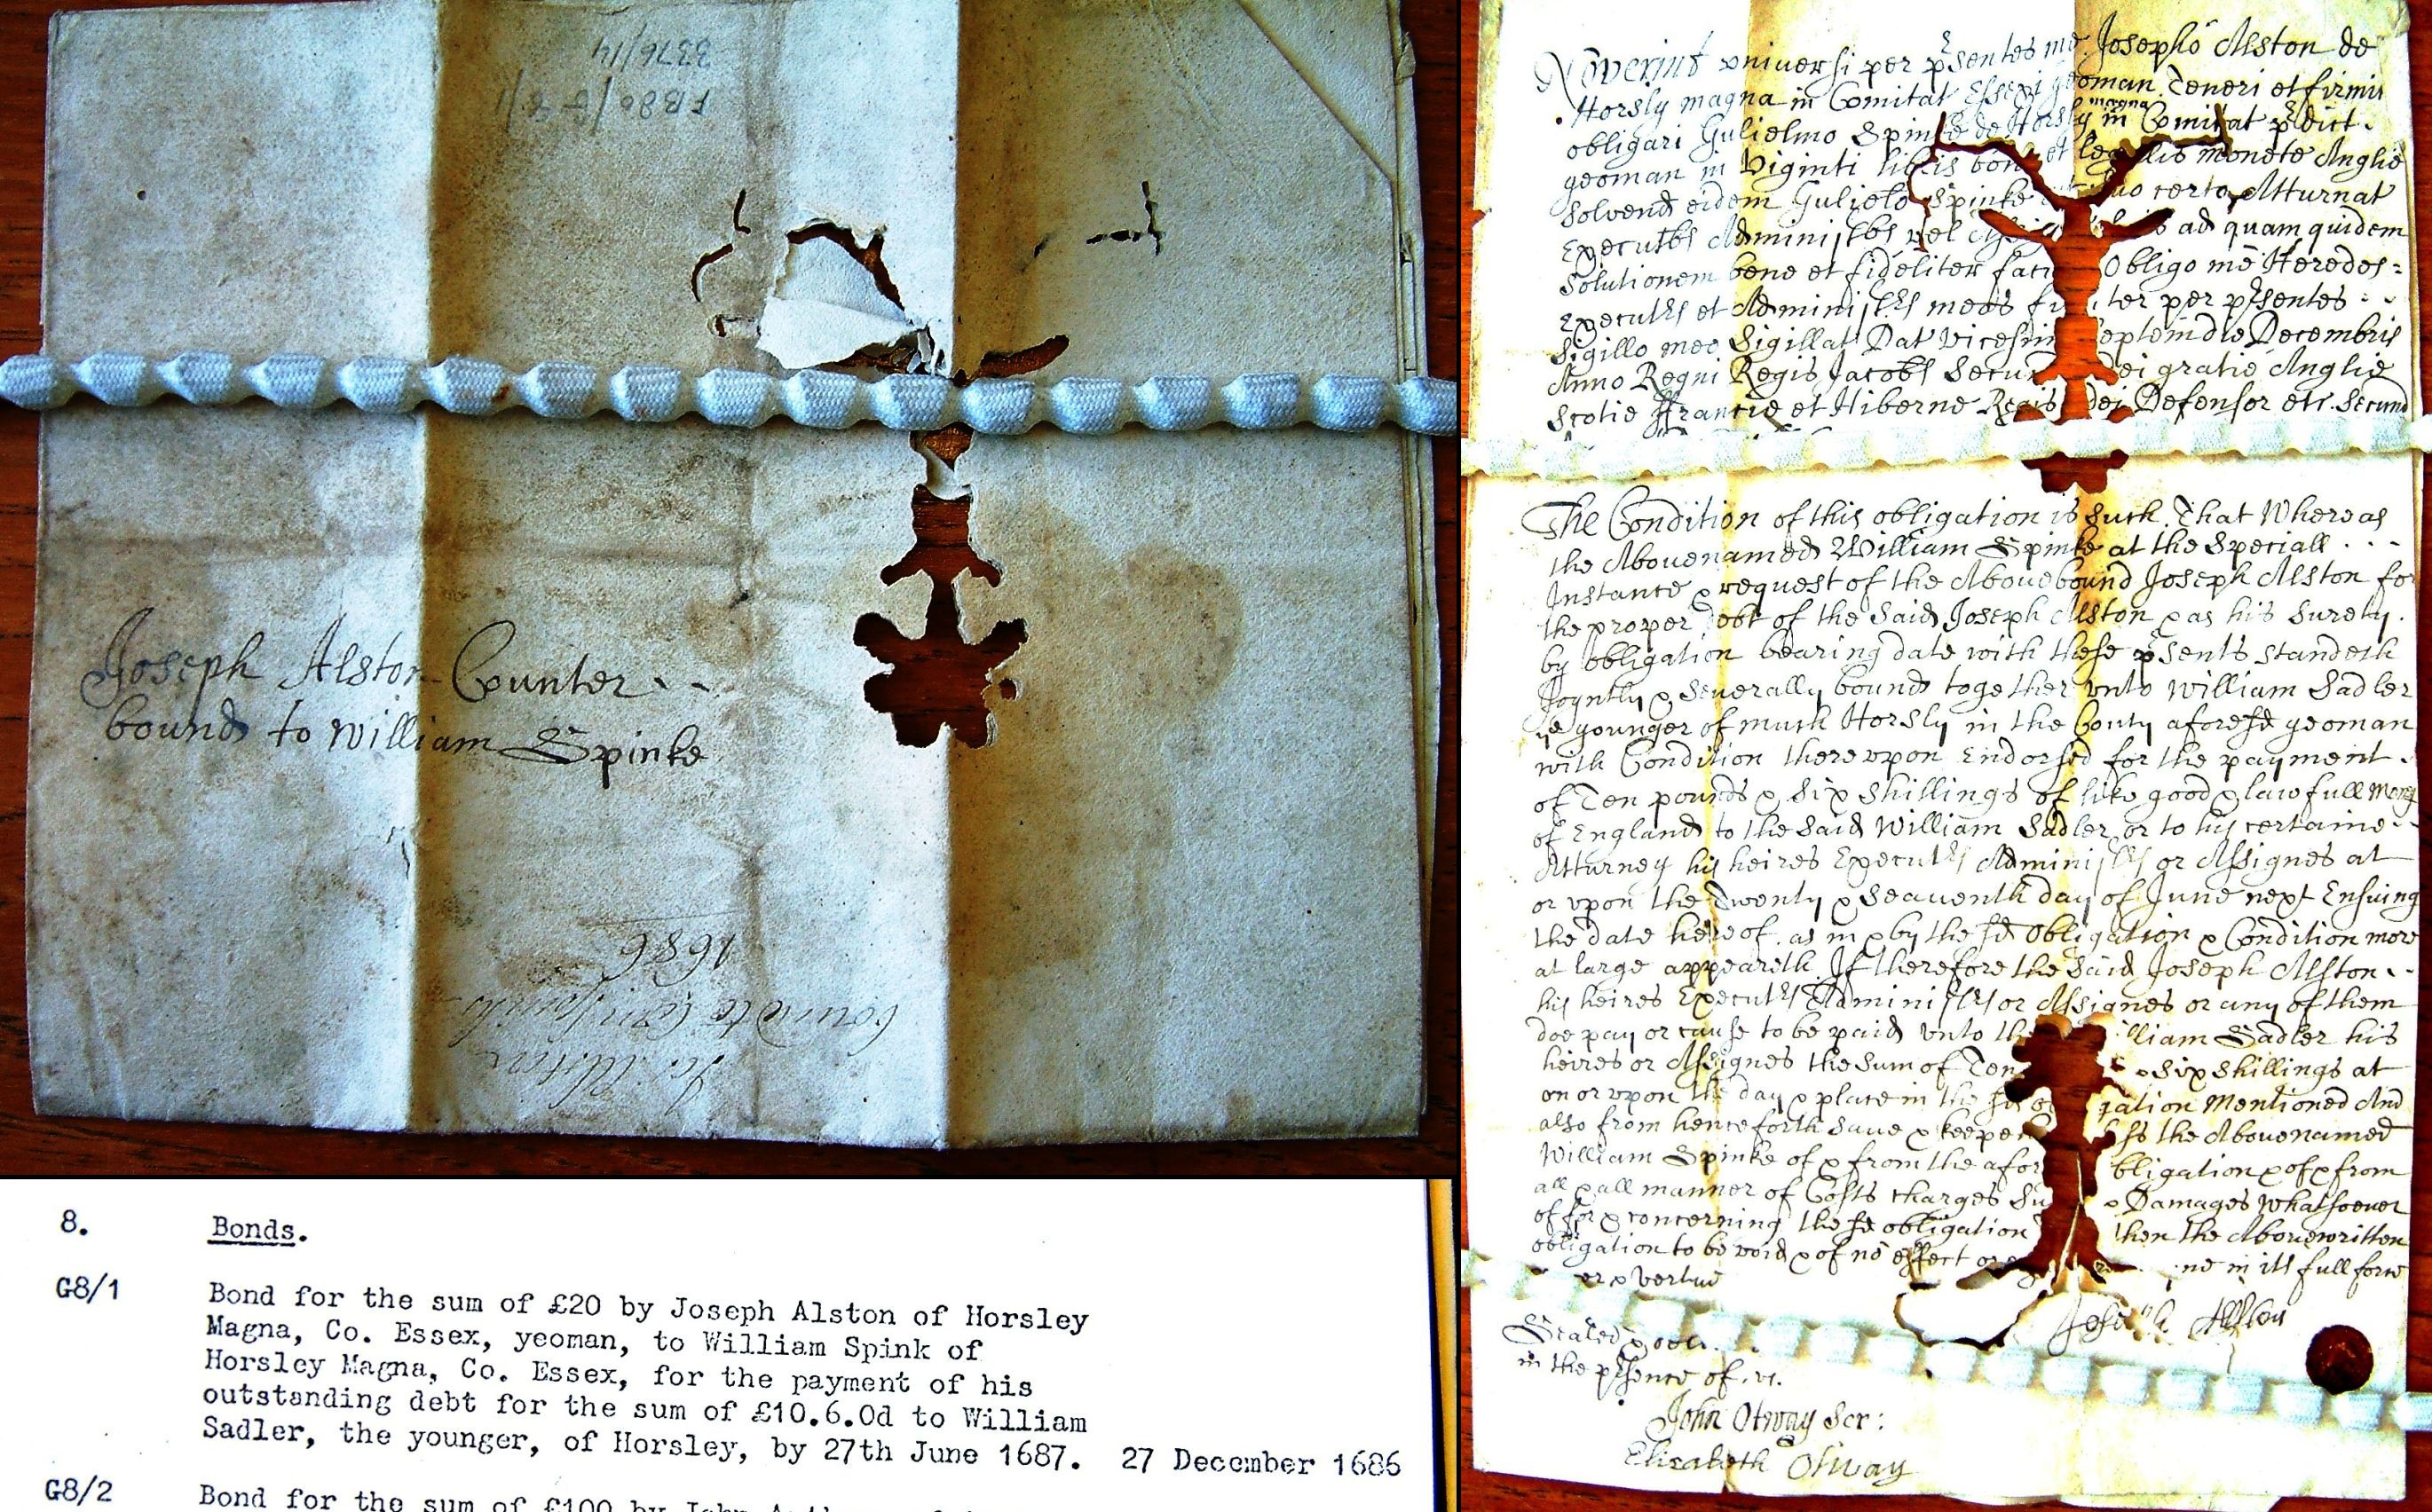 3376/14
FB80/G8/1
Joseph Alston Counter
bound to William Spinke
Jo: Alston
bound to Will Spinke
1686
8. Bonds.
G8/1 Bond for the sum of £20 by Joseph Alston of Horsley
Magna, Co. Essex, yeoman, to William Spink of
Horsley Magna, Co. Essex, for the payment of his
outstanding debt for the sum of £10.6.0d to William
Sadler, the younger, of Horsley, by 27th June 1687. 27 December 1686
G8/2 Bond for the sum of £100 by John
Noverint universi per psentes me Josepho Alston de
Horsly magna in Comitat Essexi yeoman Teneri et firmit
obligari Gulielmo Spinke de Horsly magna in Comitat pdict.
yeoman in Viginti libris bone et legalis monete Anglie
Solvend eidem Gulielo Spinke suo certo Atturnat
Executbs Administbs vel ad quam quidem
Solutionem bene et fideliter faci Obligo me Heredes
Executrs et Administrs meos fi ter per psentes
Sigillo meo Sigillat Dat Vicesim Septem die Decembris
Anno Regni Regis Jacobi Secun Dei gratie Anglie
Scotie Francie et Hiberne Regis fidei Defensor etc. Secund
The Condition of this obligation is such That Whereas
the Abovenamed William Spinke at the Speciall
Instance & request of the Abovebound Joseph Alston for
the proper debt of the Said Joseph Alston & as his Surety.
by obligation bearing date with these psents standeth
Joyntly & Severally bound together unto William Sadler
ye younger of much Horsly in the County aforesd yeoman
with Condition thereupon Endorsed for the payment
of Ten pounds & Six Shillings of like good & lawfull Money
of England to the Said William Sadler or to his certaine
Atturney his heires Executrs Administrs or Assignes at
or upon the Twenty & Seaventh day of June next Ensuing
the date hereof as in & by the sd Obligation & Condition more
at large appeareth If therefore the Said Joseph Alston
his heires Executrs Administrs or Assignes or any of them
doe pay or cause to be paid unto th illiam Sadler his
heires or Assignes the Sum of Ten & six shillings at
on or upon the day & place in the sd gation Mentioned And
also from henceforth Save & keepe the Abovenamed
William Spinke of & from the afor bligation & of & from
all & all manner of Costs charges Su & Damages whatsoever
of for & concerning the sd obligation then the Abovewritten
obligation to be void & of no effect or ne in its full force
er & vertue
Joseph Alston
Sealed &
in the psence of
John Otway Scr:
Elizabeth Otway